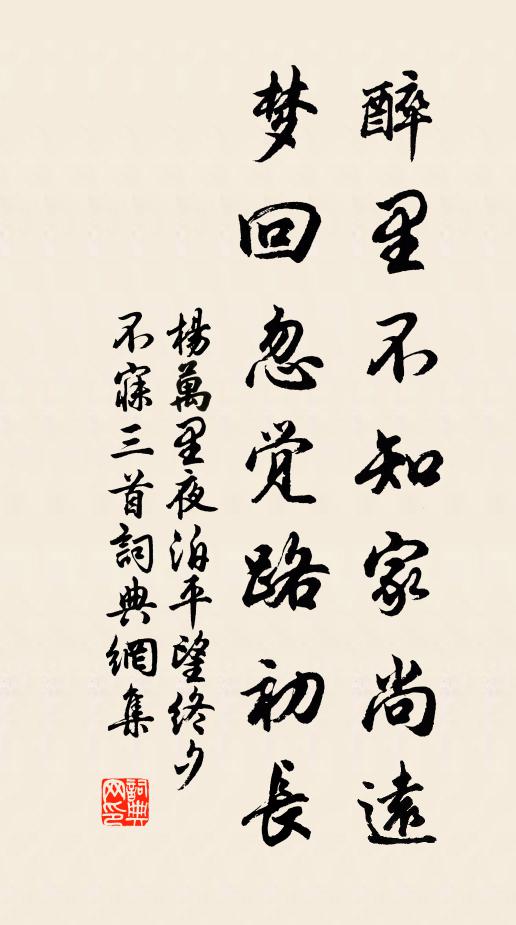 醉里不知家尚遠
梦回忽觉路初長
楊萬里夜泊平望終夕
不寐三首詞典網集
詞典
网印